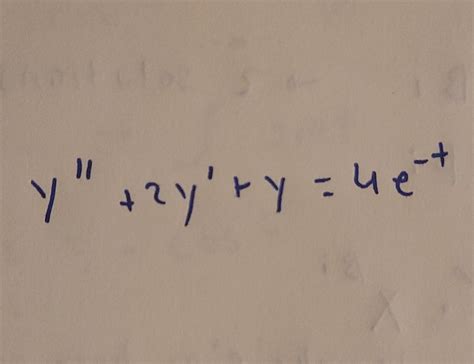 y'' + 2y' + y = 4e^{-t}